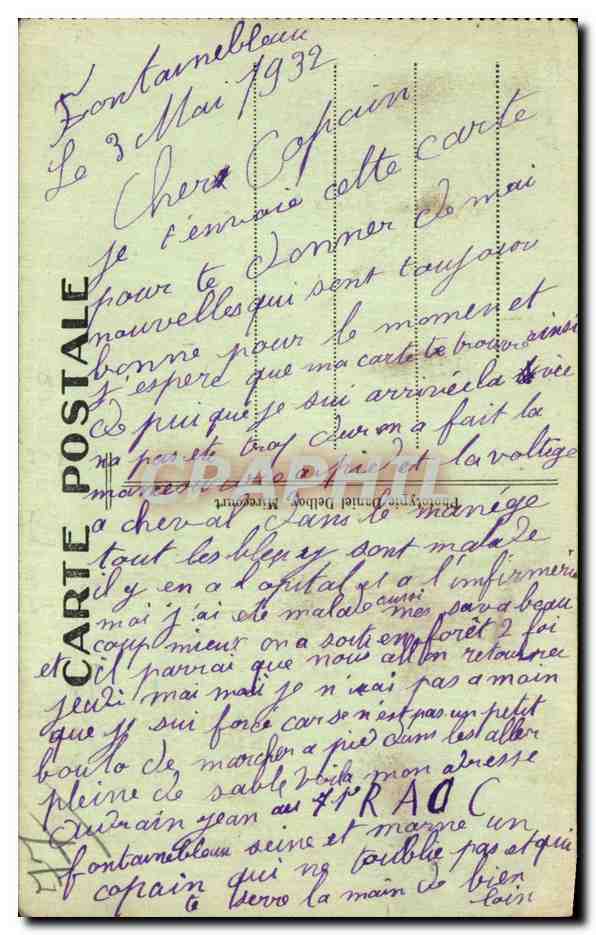 Fontainebleau
Le 3 Mai 1932
Cher Copain
je t'envoie cette carte
pour te donner de mai
nouvelles qui sont toujour
bonne pour le moment et
j'espere que ma carte te trouve ainsi
de puique je sui arrivée la
na pas ete trop dur on a fait la
a pied et la voltige
a cheval dans le manége
tout les bleu y sont malade
il y en a l'opital et a l'infirmerie
moi j'ai ete malade aussi mes sava beau
coup mieux on a sorti en forêt 2 foi
et il parrai que nous allon retourner
jeudi mai moi je n'irai pas a moin
que je sui force car se n'est pas un petit
boulo de marcher a pied dans les aller
pleine de sable voila mon adresse
jean au R A D C
fontainebleau seine et marne un
copain qui ne t'oublie pas et qui
te serre la main de bien
loin
CARTE POSTALE
Phototypie Daniel Delboy Mirecourt
CRAPHIL
77